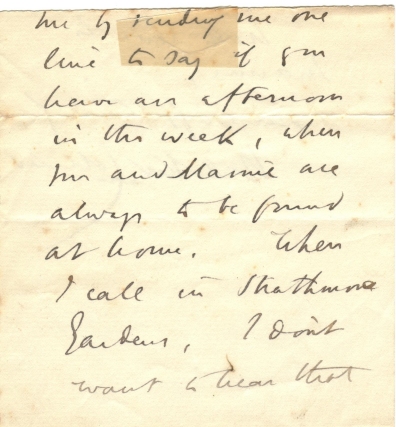 me by sending me one
line to say if you
have an afternoon
in the week, when
you and Mamie are
always to be found
at home. When
I call in Strathmore
Gardens, I don't
want to hear that